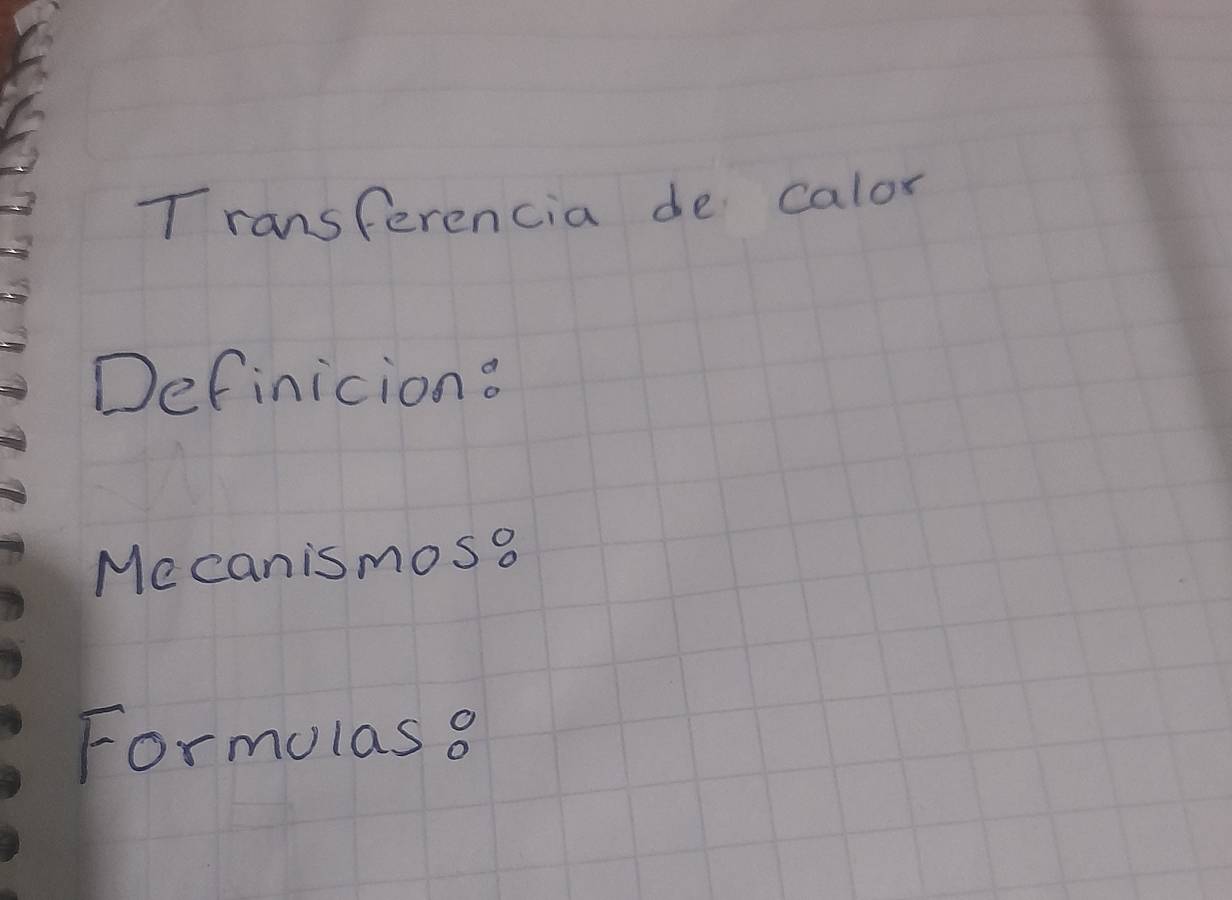 Transferencia de calor
Definicion:
Mecanismos:
Formulas: